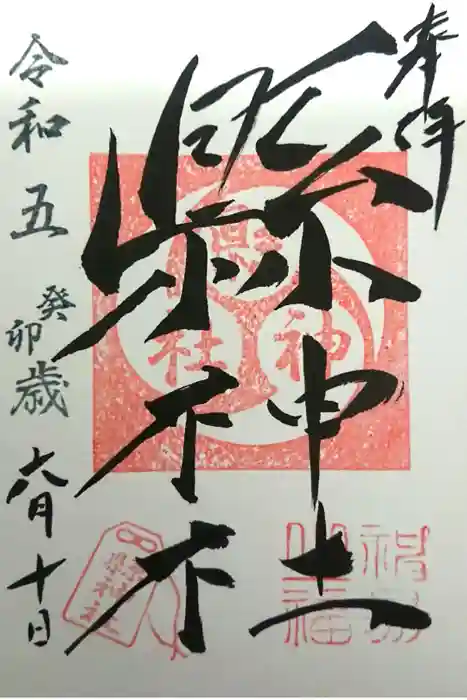 奉拝
縣神社
令和五癸卯歳六月十日
神
社